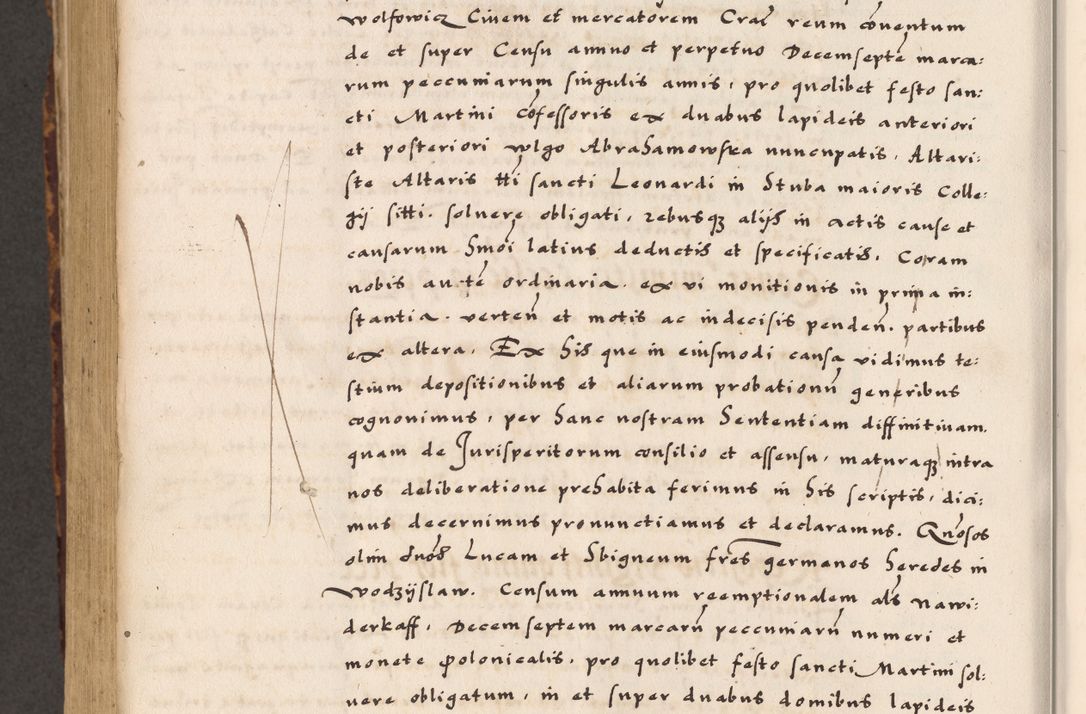 wolfowicz Ciuem et mercatorem Crac̄ reum cōuentum
de et super Censu annuo et perpetuo Decemseptē marca:
rum peccuniarum singulis annis, pro quolibet festo san:
cti Martini cōfessoris ex duabus lapideis anteriori
et posteriori vlgo Abrahamowska nuncupatis, Altari:
ste Altaris tti sancti Leonardi in Stuba maioris Colle:
gij sitti. soluere obligati, rebusq3 alijs in actis cause et
causarum hmōi latius deductis et specificatis, Coram
nobis autē ordinaria. ex vi monitionis in prima in:
stantia. verteñ et motis ac indecisis pendeñ. partibus
ex altera, Ex his que in eiusmodi causa vidimus te:
stium depositionibus et aliarum probationū generibus
cognouimus, per hanc nostram Sententiam diffinitiuam.
quam de Jurisperitorum consilio et assensu, maturaq3 intra
nos deliberatione prehabita ferimus in his scriptis, dici:
mus decernimus pronunctiamus et declaramus. Qn̄osos
olim dn̄os Lucam et Sbigneum fres germanos heredes in
wodzijslaw. Censum annuum reemptionalem als nawi:
derkaff, Decemseptem marcarū peccuniarū numeri et
monete polonicalis, pro quolibet festo sancti Martini sol:
uere obligatum, in et super duabus domibus lapideis